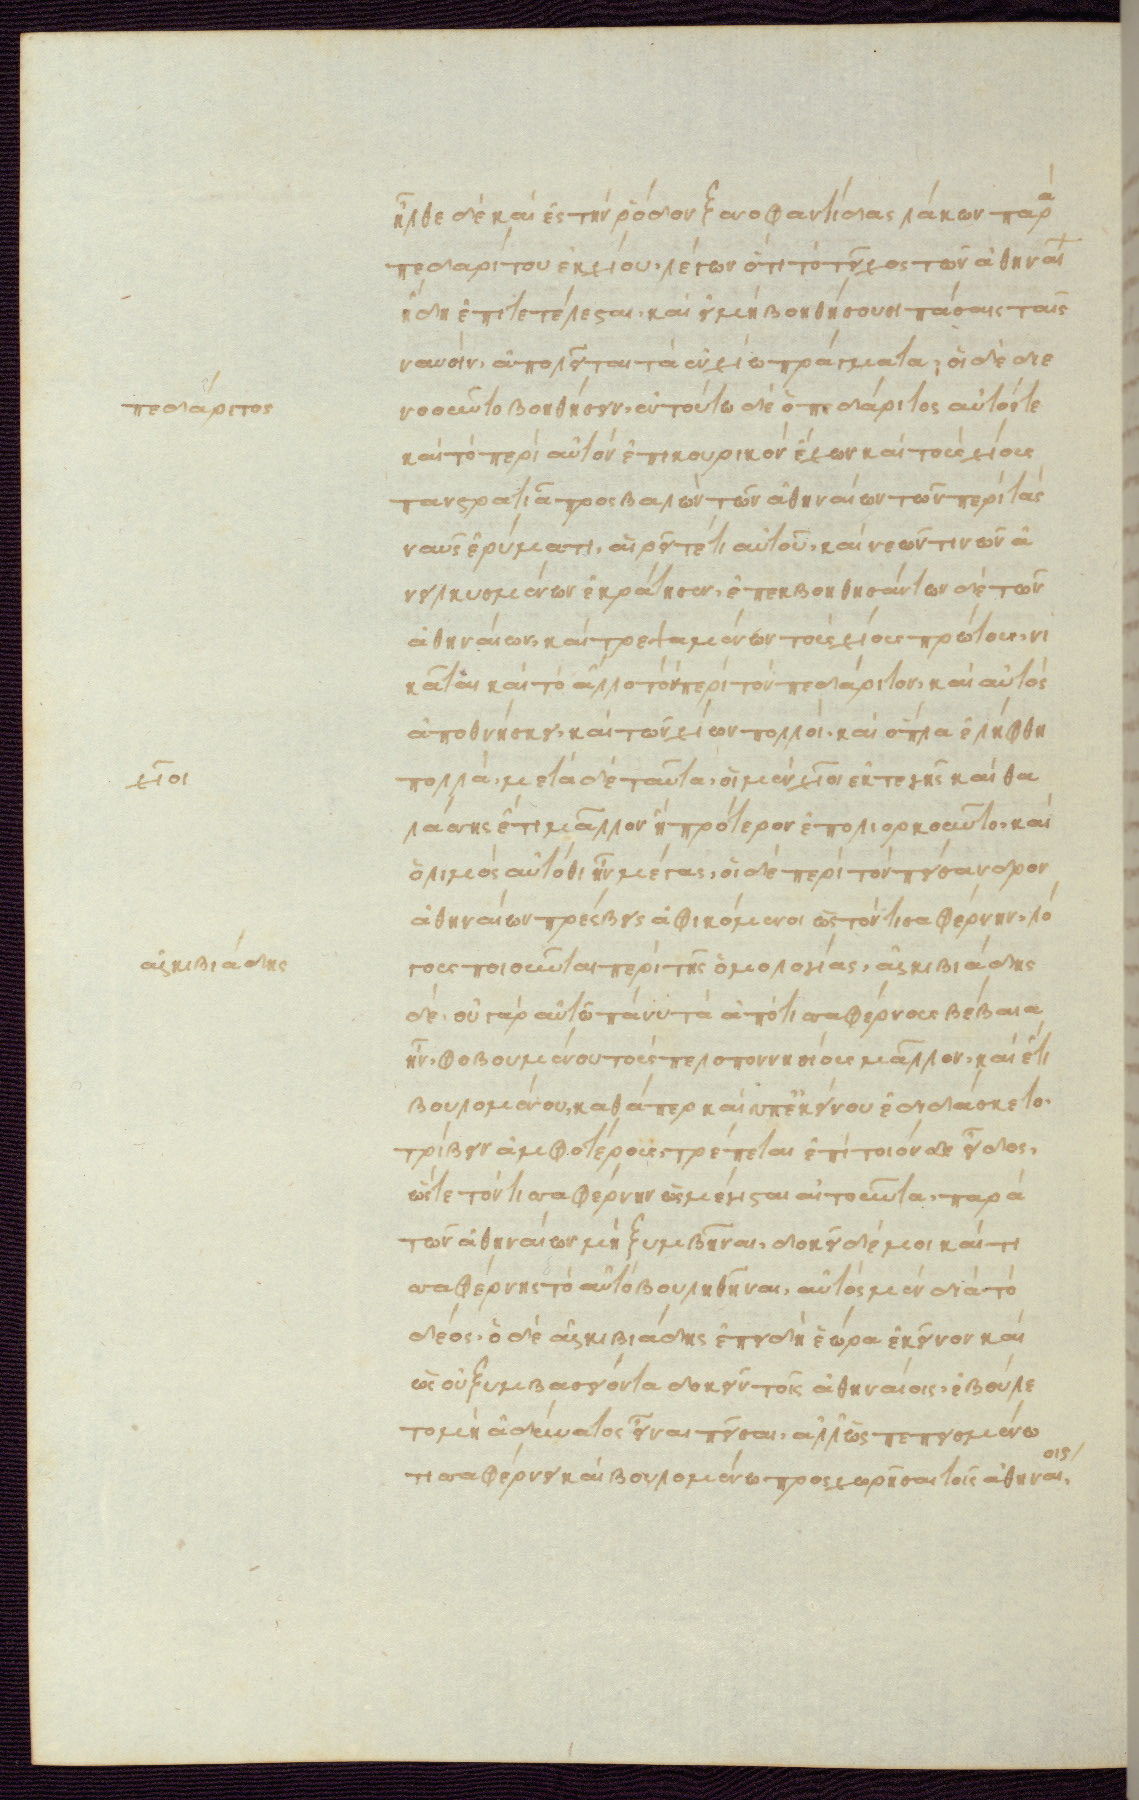 ἦλθε δὲ καὶ ἐς τὴν ῥόδον ξενοφαντίδας λάκων παρὰ
πεδαρίτου ἐκ χίου, λέγων ὅτι τὸ τεῖχος τῶν ἀθηναί
ἤδη ἐπιτετέλεσται, καὶ εἰ μὴ βοηθήσουσι πάσαις ταῖς
ναυσὶν, ἀπολεῖται τὰ ἐν χίω πράγματα; οἱ δὲ διε
πεδάριτος
νοοῦντο βοηθήσειν, ἐν τούτω δὲ ὁ πεδάριτος αὐτός τε
καὶ τὸ περὶ αὐτὸν ἐπικουρικὸν ἔχων καὶ τοὺς χίους
πανστρατιᾶ προσβαλὼν τῶν ἀθηναίων τῶν περὶ τὰς
ναῦς ἐρύματι, αἱρεῖ τέ τι αὐτοῦ, καὶ νεῶν τινῶν ἀ
νειλκυσμένων ἐκράτησεν, ἐπεκβοηθησάντων δὲ τῶν
ἀθηναίων, καὶ τρεψαμένων τοὺς χίους πρώτους, νι
κᾶται καὶ τὸ ἄλλο τὸν περὶ τὸν πεδάριτον, καὶ αὐτὸς
ἀποθνήσκει, καὶ τῶν χίων πολλοὶ, καὶ ὅπλα ἐλήφθη
χῖοι
πολλά, μετὰ δὲ ταῦτα, οἱ μὲν χῖοι ἔκ τε γῆς καὶ θα
λάσσης ἔτι μᾶλλον ἢ πρότερον ἐπολιορκοῦντο, καὶ
ὁ λιμὸς αὐτόθι ἦν μέγας, οἱ δὲ περὶ τὸν πείσανδρον
ἀθηναίων πρέσβεις ἀφικόμενοι ὡς τὸν τισαφέρνην, λό
ἀλκιβιάδης
γους ποιοῦνται περὶ τῆς ὁμολογίας, ἀλκιβιάδης
δέ, οὐ γὰρ αὐτῶ πάνυ τὰ ἀπὸ τισσαφέρνους βέβαια
ἦν, φοβουμένου τοὺς πελοποννησίους μᾶλλον, καὶ ἔτι
βουλομένου, καθάπερ καὶ ὑπ' ἐκείνου ἐδιδάσκετο,
τρίβειν ἀμφοτέρους, τρέπεται ἐπὶ τοιόνδε εἶδος,
ὥστε τὸν τισσαφέρνην ὡς μέγιστα αἰτοῦντα, παρὰ
τῶν ἀθηναίων μὴ ξυμβῆναι, δοκεῖ δέ μοι καὶ τι
σσαφέρνης τὸ αὐτὸ βουληθῆναι, αὐτὸς μὲν διὰ τὸ
δέος, ὁ δὲ ἀλκιβιάδης ἐπειδὴ ἑώρα ἐκεῖνον καὶ
ὡς οὐ ξυμβασείοντα δοκεῖν τοῖς ἀθηναίοις, ἐβούλε
το μὴ ἀδύνατος εἶναι πεῖσαι, ἀλλ' ὡς πεπεισμένω
τισσαφέρνει καὶ βουλομένω προσχωρῆσαι τοῖς ἀθηναίοις,